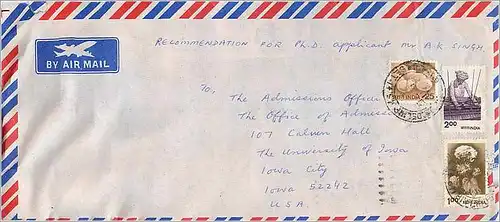 RECOMMENDATION FOR Ph.D. applicant Mr A K SINGH.
BY AIR MAIL
To,
The Admissions Officer
The Office of Admissions
107 Calvin Hall
The University of Iowa
Iowa City
Iowa 52242
U.S.A.
25
INDIA
2.00
INDIA
1.00
INDIA